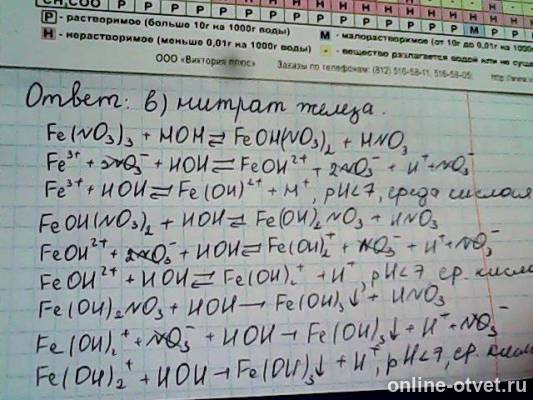 CH₃COO Р Р Р Р Р Р Р
Р - растворимое (больше 10г на 1000г воды) М - малорастворимое (от 10г до 0,01г на 1000
Н - нерастворимое (меньше 0,01г на 1000г воды) - вещество разлагается водой или не
ООО «Виктория плюс» Заказы по телефонам: (812) 516-58-11, 516-58-05; http://www
Ответ: в) нитрат железа.
Fe(NO₃)₃ + HOH ⇄ FeOH(NO₃)₂ + HNO₃
Fe³⁺ + 3NO₃⁻ + HOH ⇄ FeOH²⁺ + 2NO₃⁻ + H⁺ + NO₃⁻
Fe³⁺ + HOH ⇄ Fe(OH)²⁺ + H⁺, pH<7, среда кислая
FeOH(NO₃)₂ + HOH ⇄ Fe(OH)₂NO₃ + HNO₃
FeOH²⁺ + 2NO₃⁻ + HOH ⇄ Fe(OH)₂⁺ + NO₃⁻ + H⁺ + NO₃⁻
FeOH²⁺ + HOH ⇄ Fe(OH)₂⁺ + H⁺, pH<7 ср. кисла
Fe(OH)₂NO₃ + HOH → Fe(OH)₃↓ + HNO₃
Fe(OH)₂⁺ + NO₃⁻ + HOH → Fe(OH)₃↓ + H⁺ + NO₃⁻
Fe(OH)₂⁺ + HOH → Fe(OH)₃↓ + H⁺, pH<7, ср. кисла
online-otvet.ru